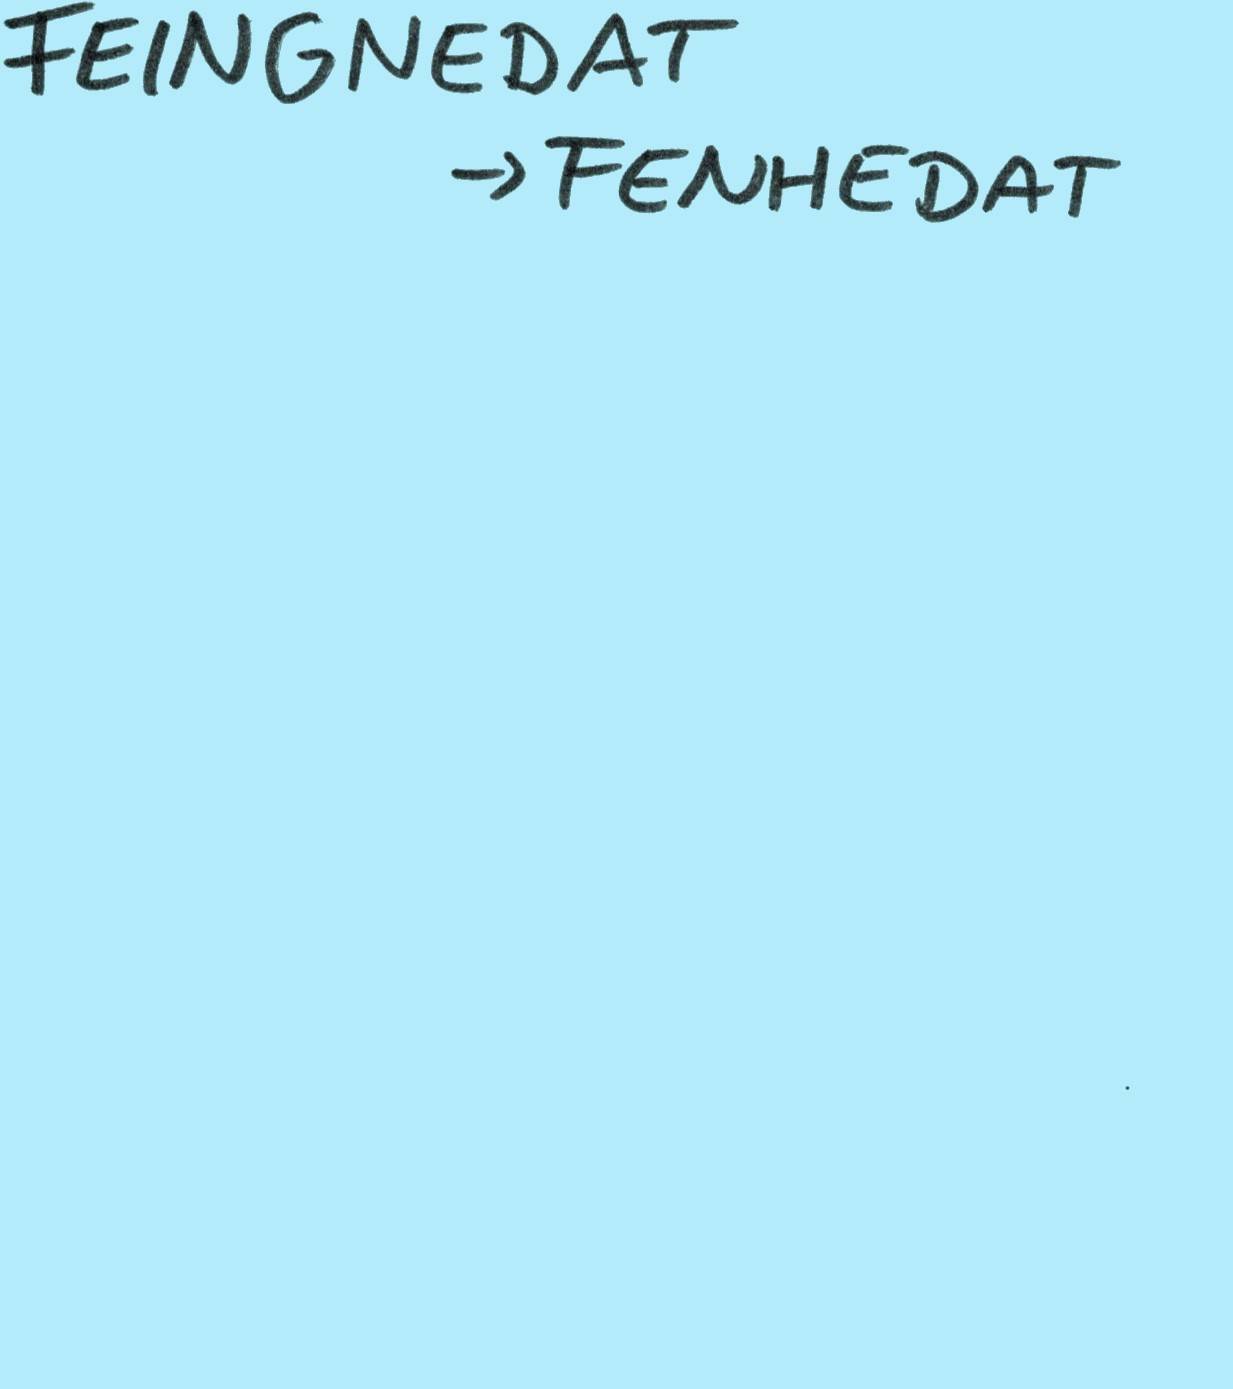 FEINGNEDAT
→ FENHEDAT